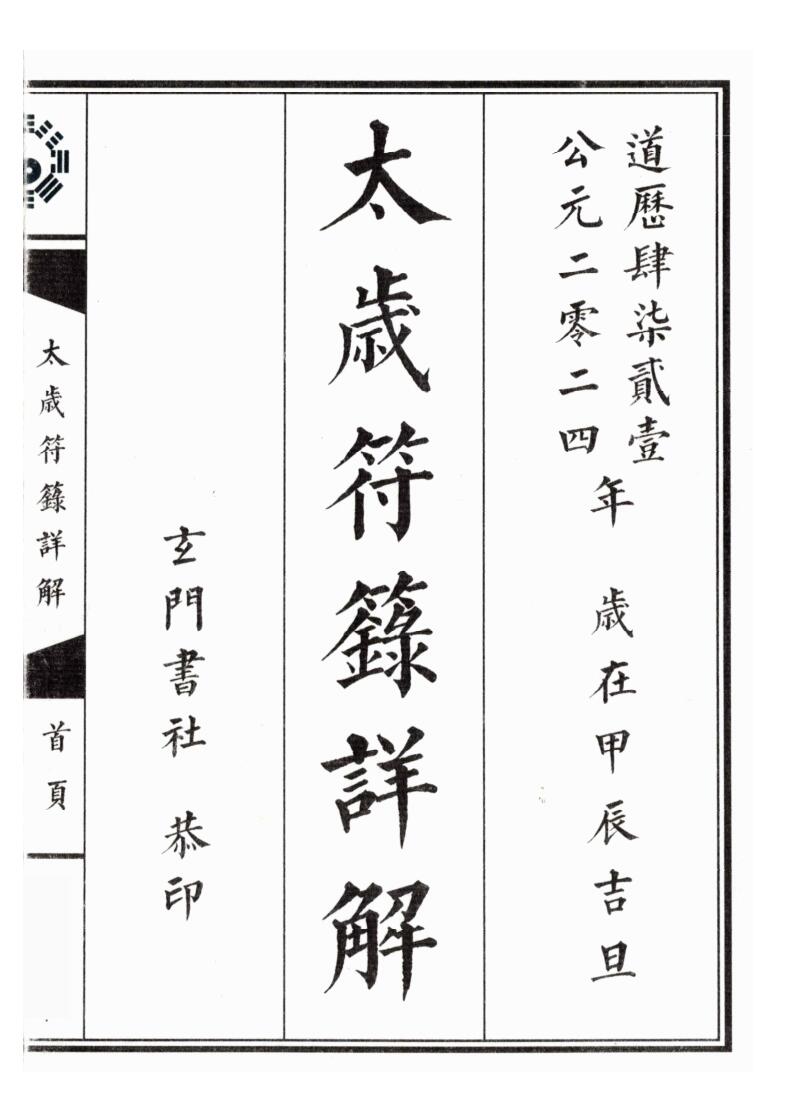 道歷肆柒貳壹
公元二零二四
年 歲在甲辰吉旦
太歲符籙詳解
玄門書社 恭印
太歲符籙詳解
首頁